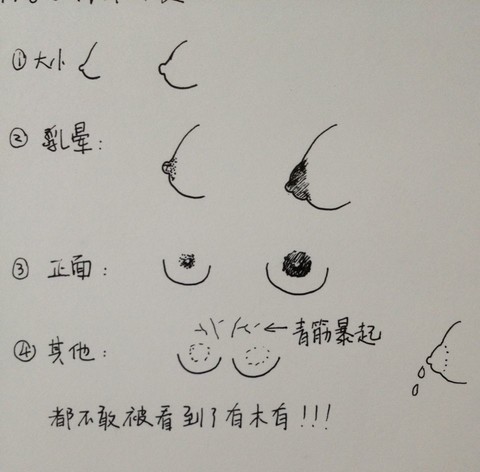 ①大小
②乳晕：
③正面：
④其他：
←青筋暴起
都不敢被看到了有木有!!!